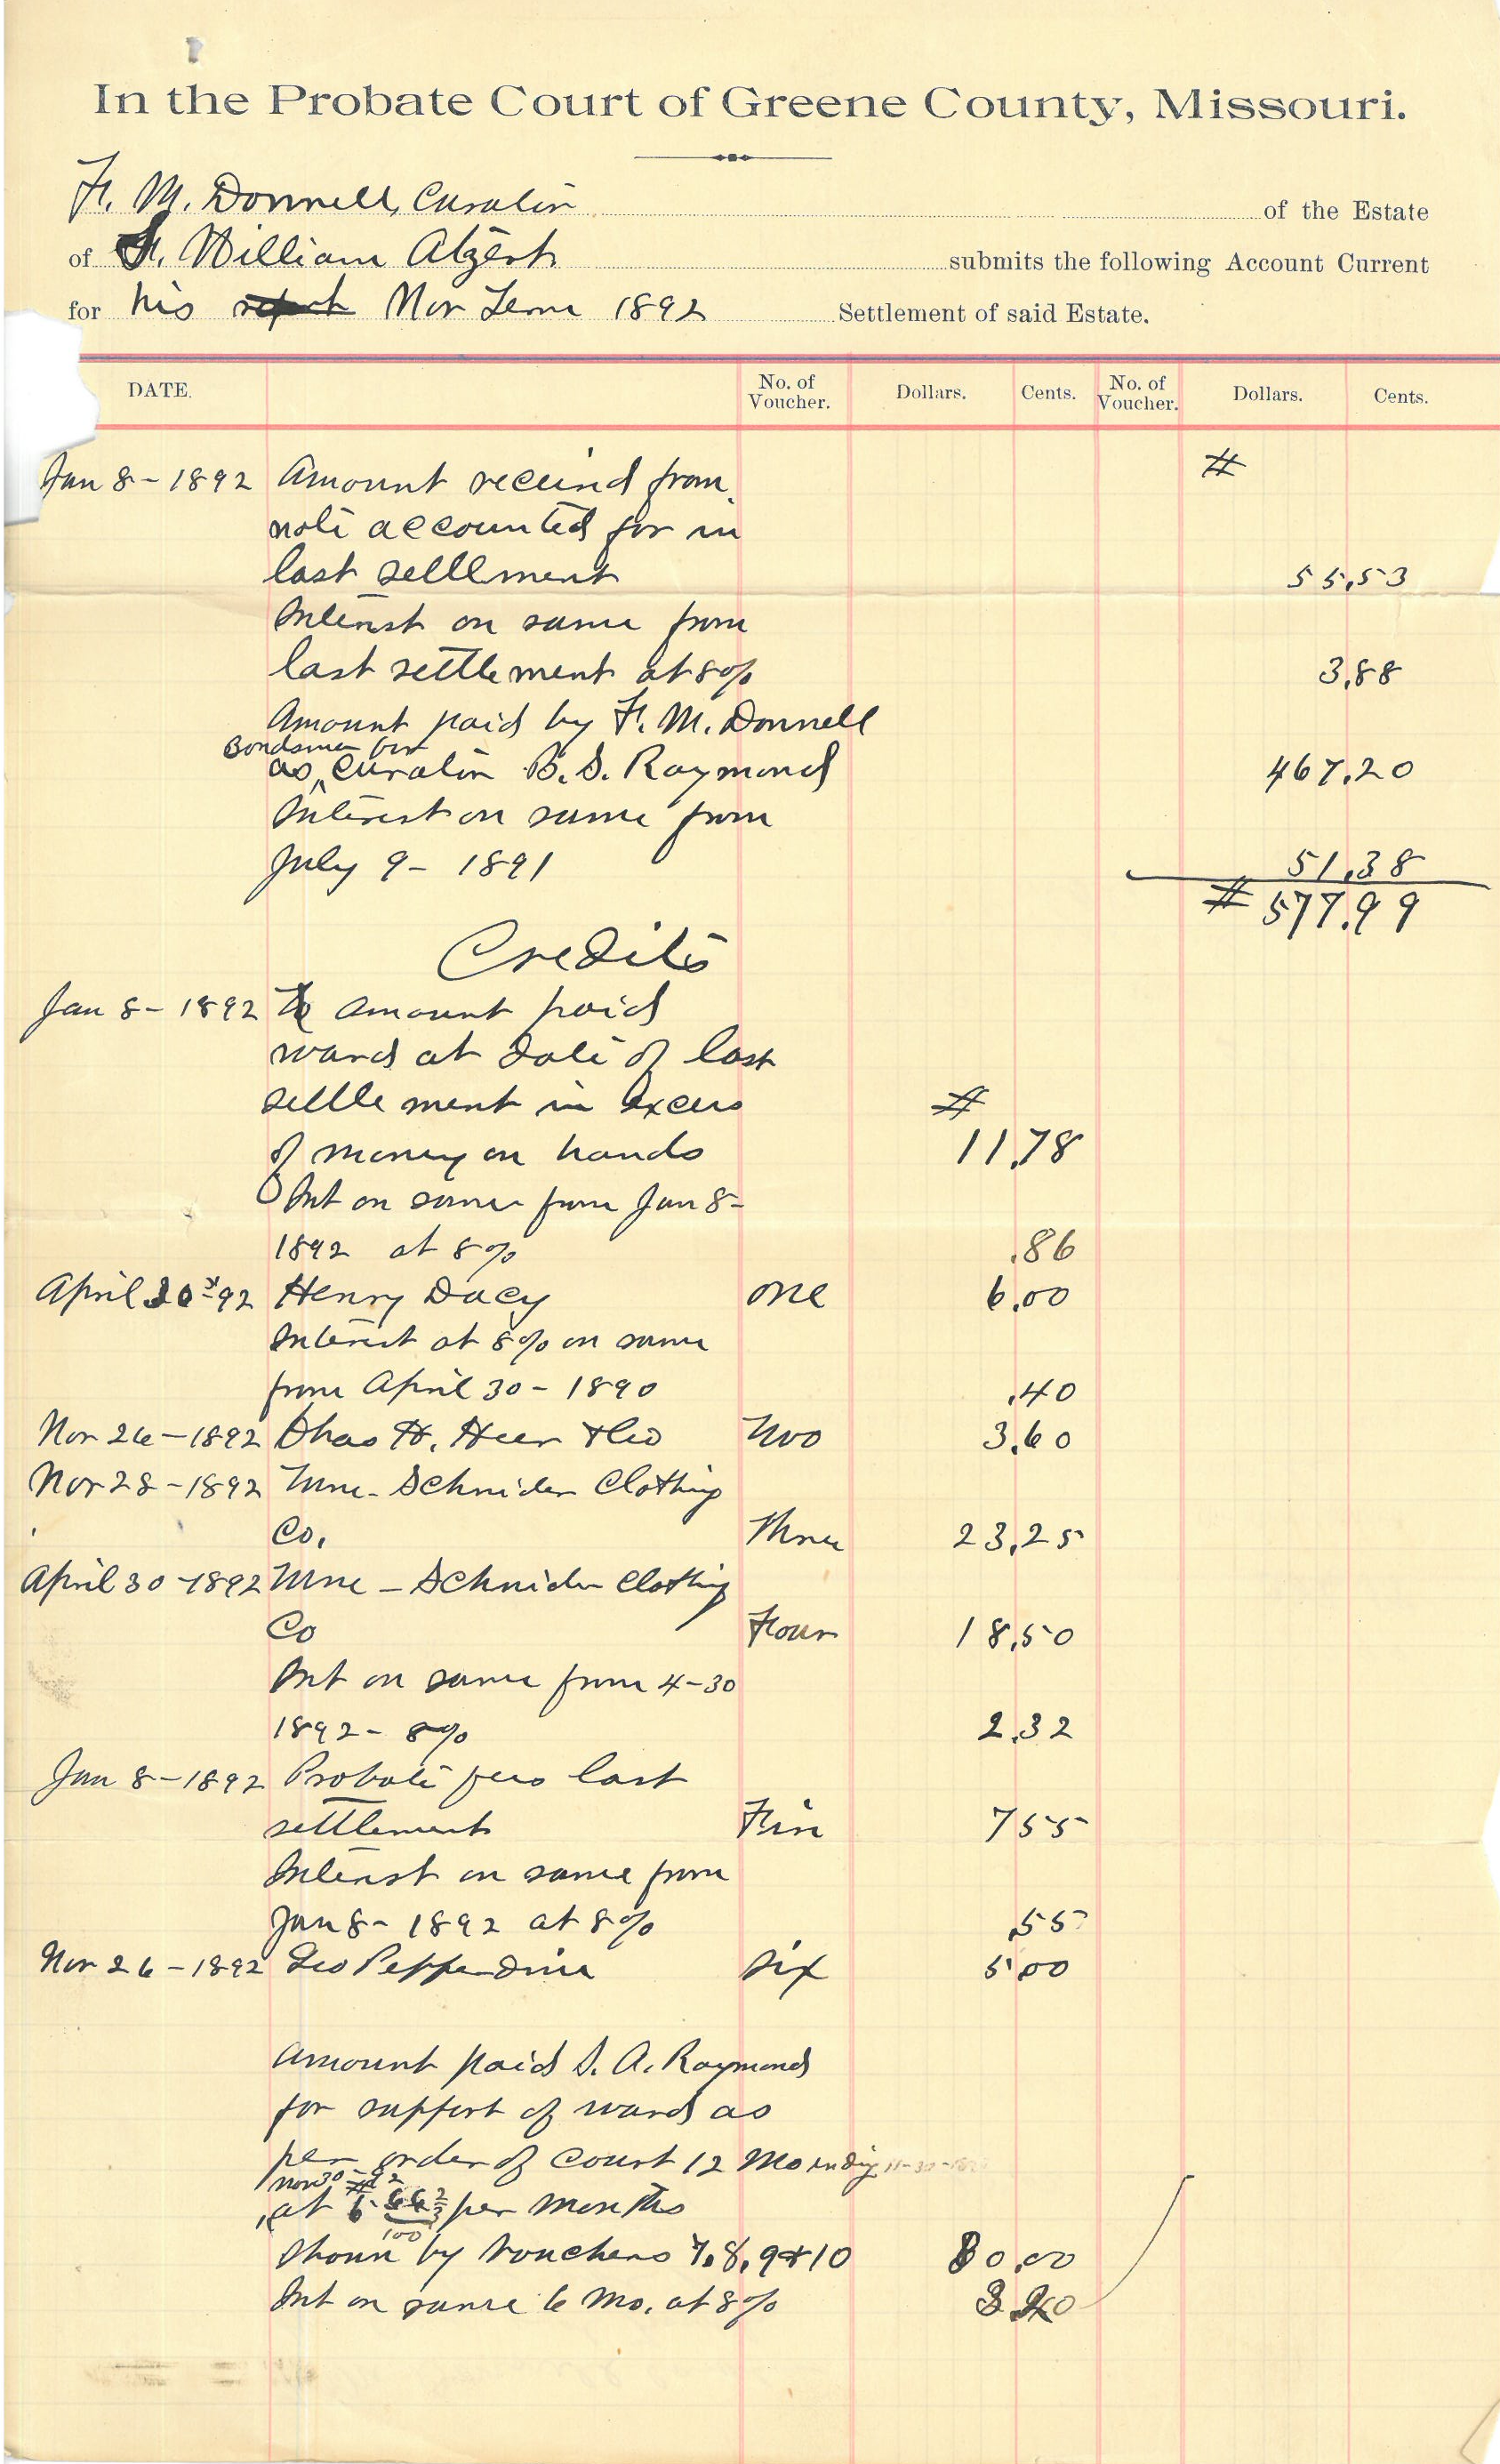 In the Probate Court of Greene County, Missouri.
F. M. Donnell, Curator of the Estate
of F. William Algert submits the following Account Current
for his Nov Term 1892 Settlement of said Estate.
DATE. No. of Voucher. Dollars. Cents. No. of Voucher. Dollars. Cents.
Jan 8 - 1892 Amount received from $
note accounted for in
last settlement 55.53
Interest on same from
last settlement at 8% 3.88
Amount paid by F. M. Donnell
Bondsman for
as curator B. S. Raymond 467.20
Interest on same from
July 9 - 1891 51.38
$ 577.99
Credits
Jan 8 - 1892 To amount paid
ward at date of last
settlement in excess $
of money on hands 11.78
Int on same from Jan 8 -
1892 at 8% .86
April 30 - 92 Henry Dacy one 6.00
Interest at 8% on same
from April 30 - 1890 .40
Nov 26 - 1892 Chas H. Heer & Co Two 3.60
Nov 28 - 1892 - Schnider Clothing
Co. Three 23.25
April 30 - 1892 - Schnider Clothing
Co Four 18.50
Int on same from 4-30
1892 - 8% 2.32
Jan 8 - 1892 Probate fees last
settlement Five 7 55
Interest on same from
Jan 8 - 1892 at 8% .55
Nov 26 - 1892 Geo Pepperdine six 5.00
Amount paid S. A. Raymond
for support of ward as
per order of court 12 Mo ending
Nov 30 - 92
at $6 66 2/3 /100 per months
Shown by vouchers 7.8.9 & 10 80.00
Int on same 6 Mo. at 8% 3 20